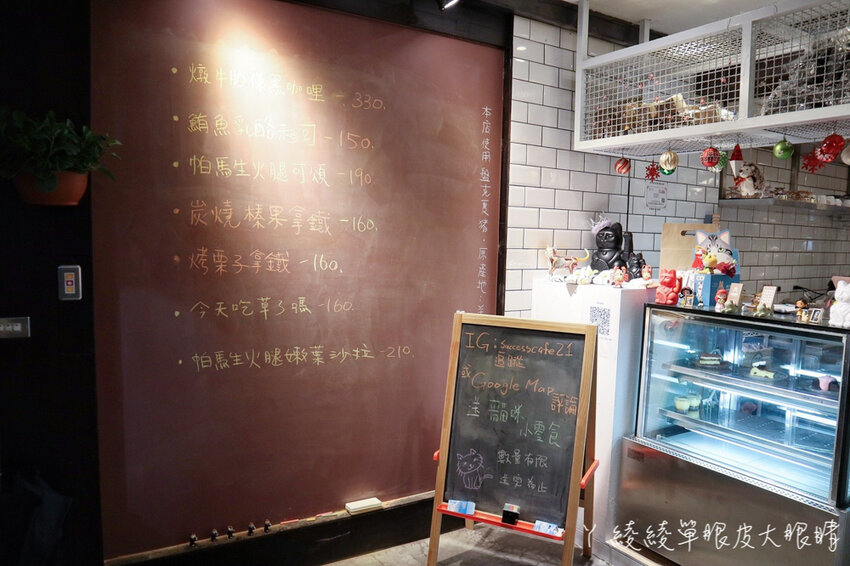 • 燉牛肋條黑咖哩 - 330.
• 鮪魚乳酪起司 - 150.
• 帕馬生火腿可頌 - 190.
• 炭燒榛果拿鐵 - 160.
• 烤栗子拿鐵 - 160.
• 今天吃草了嗎 - 160.
• 帕馬生火腿嫩葉沙拉 - 210.
本店使用盤克夏豬。原產地:
IG: successcafe21
追蹤
或 Google Map
評論
送 小零食
數量有限
送完為止
ㄚ綾綾單眼皮大眼睛